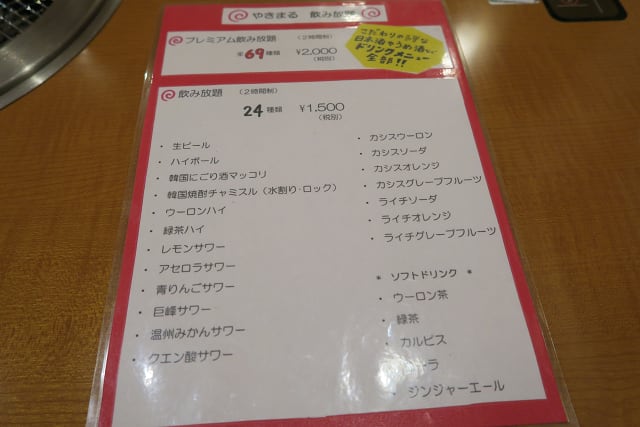 やきまる 飲み放題
プレミアム飲み放題 (2時間制)
全69種類 ¥2,000
(税別)
こだわりの
日本酒やうめ酒など
ドリンクメニュー
全部!!
飲み放題 (2時間制)
24種類 ¥1,500
(税別)
・生ビール
・ハイボール
・韓国にごり酒マッコリ
・韓国焼酎チャミスル(水割り・ロック)
・ウーロンハイ
・緑茶ハイ
・レモンサワー
・アセロラサワー
・青りんごサワー
・巨峰サワー
・温州みかんサワー
・クエン酸サワー
・カシスウーロン
・カシスソーダ
・カシスオレンジ
・カシスグレープフルーツ
・ライチソーダ
・ライチオレンジ
・ライチグレープフルーツ
* ソフトドリンク *
・ウーロン茶
・緑茶
・カルピス
・ジンジャーエール